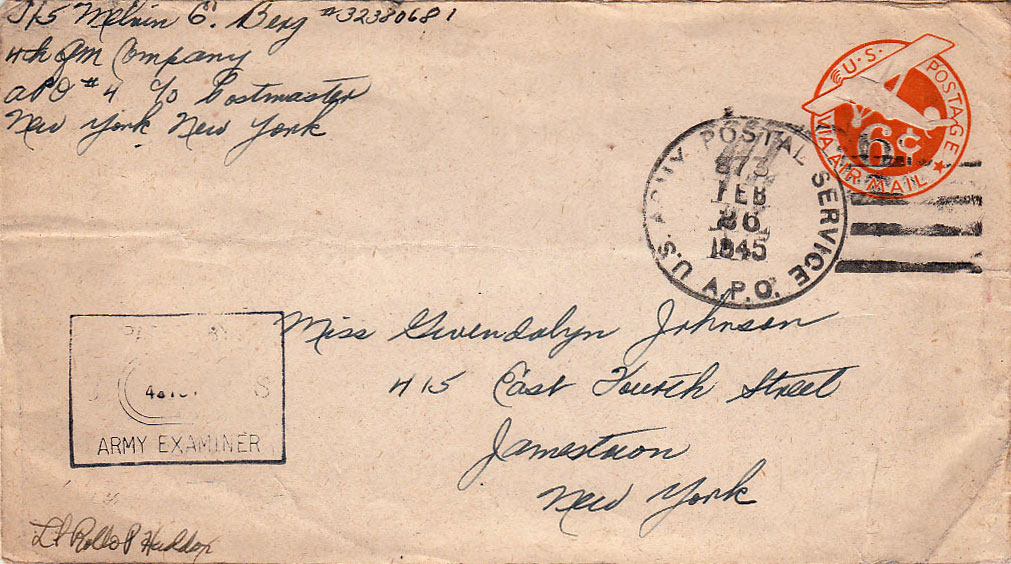 T/5 Melvin E. Berg #32380681
4th QM Company
APO #4 c/o Postmaster
New York New York
U.S. POSTAGE
6¢
VIA AIR MAIL
U.S. ARMY POSTAL SERVICE
873
FEB
26
1945
A.P.O.
Miss Gwendolyn Johnson
415 East Fourth Street
Jamestown
New York
ARMY EXAMINER
Lt Rollo P